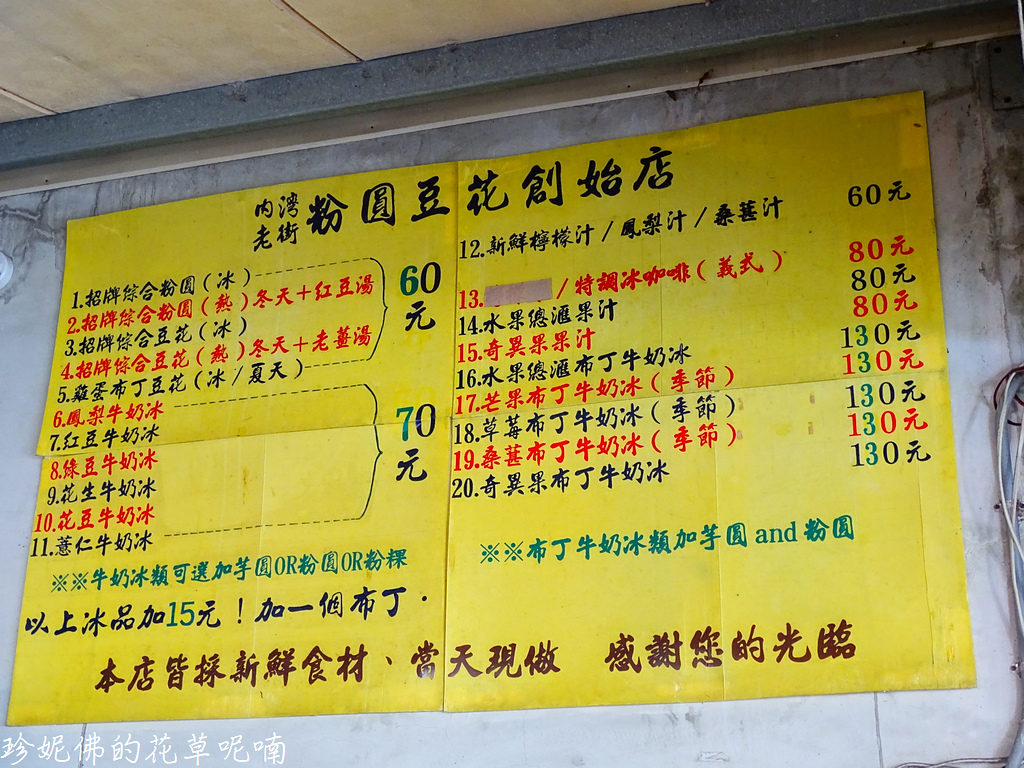 內灣老街 粉圓豆花創始店
1.招牌綜合粉圓(冰)
2.招牌綜合粉圓(熱)冬天+紅豆湯
3.招牌綜合豆花(冰)
4.招牌綜合豆花(熱)冬天+老薑湯
5.雞蛋布丁豆花(冰/夏天)
60元
6.鳳梨牛奶冰
7.紅豆牛奶冰
8.綠豆牛奶冰
9.花生牛奶冰
10.花豆牛奶冰
11.薏仁牛奶冰
70元
※※牛奶冰類可選加芋圓OR粉圓OR粉粿
以上冰品加15元!加一個布丁.
12.新鮮檸檬汁/鳳梨汁/桑葚汁 60元
13. /特調冰咖啡(義式) 80元
14.水果總滙果汁 80元
15.奇異果果汁 80元
16.水果總滙布丁牛奶冰 130元
17.芒果布丁牛奶冰(季節) 130元
18.草莓布丁牛奶冰(季節) 130元
19.桑葚布丁牛奶冰(季節) 130元
20.奇異果布丁牛奶冰 130元
※※布丁牛奶冰類加芋圓and粉圓
本店皆採新鮮食材、當天現做 感謝您的光臨
珍妮佛的花草呢喃